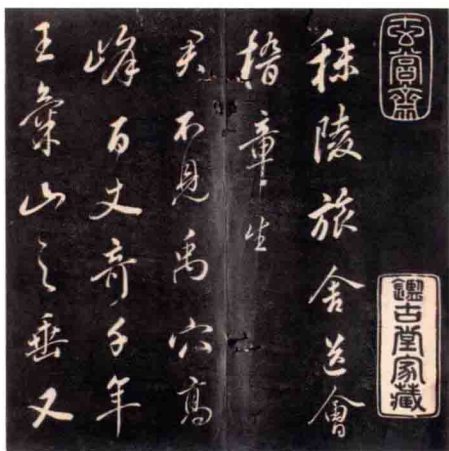 玄賞齋
鑑古堂家藏
秣陵旅舍送會
稽章生
君不見禹穴高
峰百丈奇千年
山之垂又